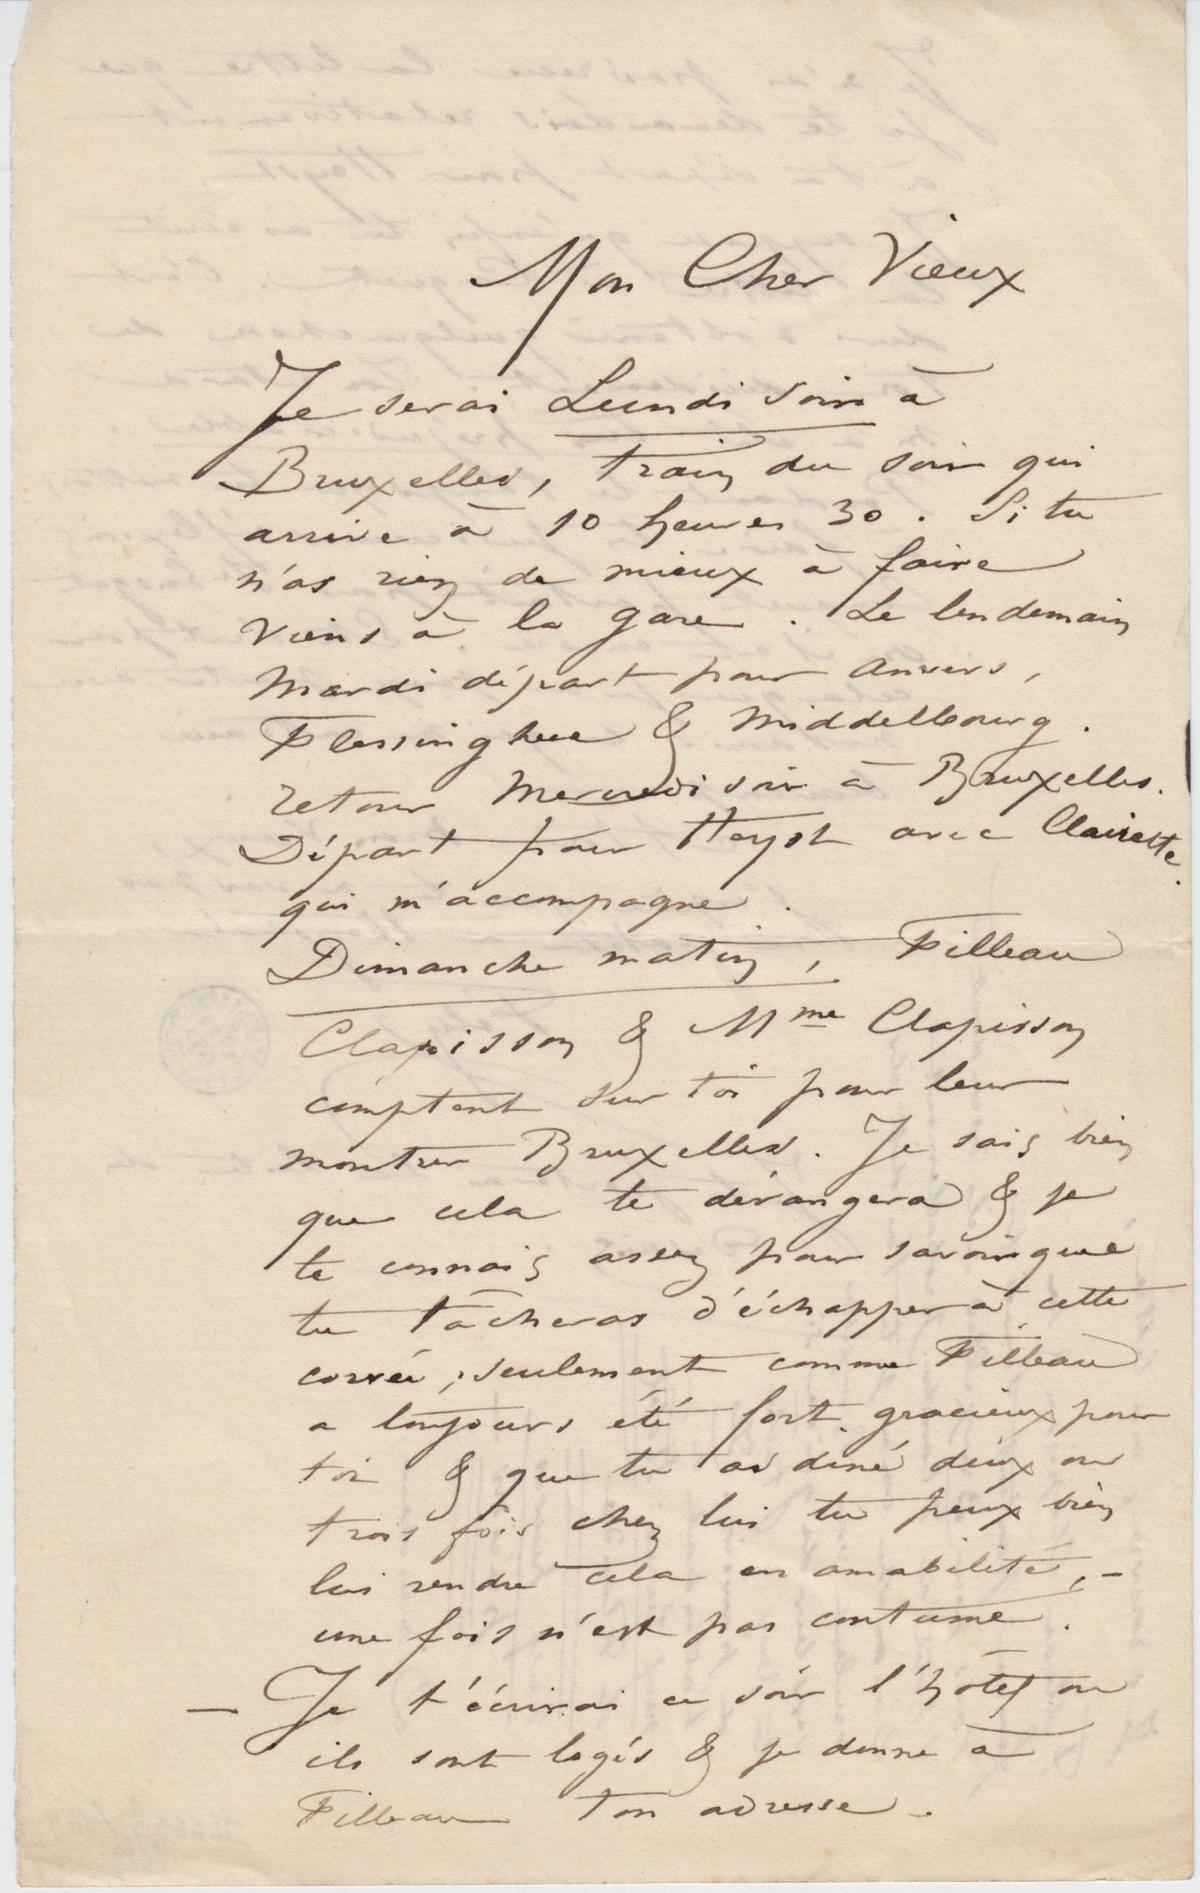 Mon Cher Vieux
Je serai Lundi soir à
Bruxelles, train du soir qui
arrive à 10 heures 30. Si tu
n'as rien de mieux à faire
viens à la gare. Le lendemain
Mardi départ pour Anvers,
Flessinghue & Middelbourg.
retour Mercredi soir à Bruxelles.
Départ pour Heyst avec Clairette.
qui m'accompagne.
Dimanche matin, Filleau
Clapisson & Mme Clapisson
comptent sur toi pour leur
montrer Bruxelles. Je sais bien
que cela te dérangera & je
te connais assez pour savoir que
tu tâcheras d'échapper à cette
corvée, seulement comme Filleau
a toujours été fort gracieux pour
toi & que tu as diné deux ou
trois fois chez lui tu peux bien
lui rendre cela en amabilité, –
une fois n'est pas coutume.
– Je t'écrirai ce soir l'hôtel ou
ils sont logés & je donne à
Filleau ton adresse.